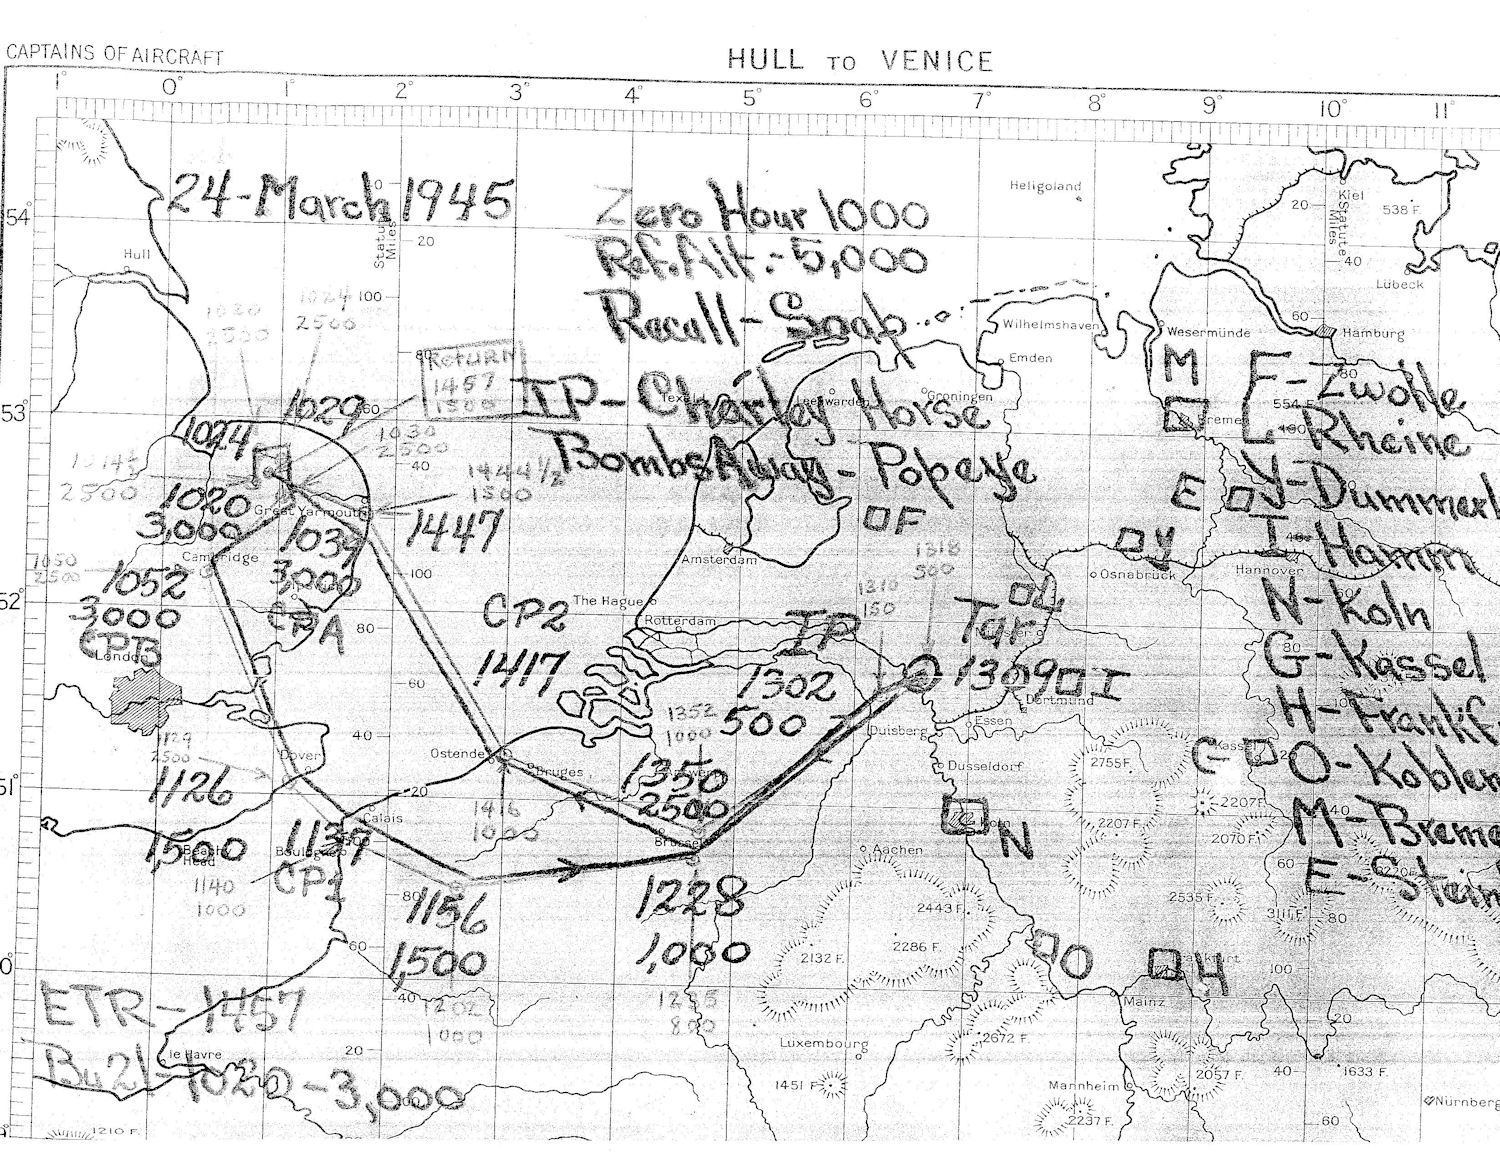 CAPTAINS OF AIRCRAFT
HULL TO VENICE
1° 0° 1° 2° 3° 4° 5° 6° 7° 8° 9° 10° 11°
24-March 1945
Zero Hour 1000
Ref. Alt.-5,000
Recall-Soap
IP-Charley Horse
Bombs Away-Popeye
Statute Miles
Statute Miles
54°
53°
52°
51°
Hull
Heligoland
Kiel
538 F.
Lübeck
Wilhelmshaven
Wesermünde
Hamburg
Emden
Groningen
Leeuwarden
Texel
554 F.
M
F-Zwolle
L-Rheine
Y-Dummerl
I-Hamm
N-Koln
G-Kassel
H-Frankf
O-Koblen
M-Breme
E-Stein
1030
2500
1024
2500
RETURN
1457
1500
1029
1024
1030
2500
1444½
1500
1014½
2500
1020
3,000
Great Yarmouth
1034
3,000
CPA
1447
Cambridge
1050
2500
1052
3000
CPB
London
E
Y
F
L
I
Amsterdam
The Hague
Rotterdam
Hannover
Osnabruck
CP2
1417
IP
1302
500
1310
150
1318
500
Tar
1309
Dortmund
Essen
Duisberg
Dusseldorf
Koln
N
Aachen
G
Dover
1129
2500
1126
1,500
Calais
Beachy Head
Boulogne
1137
CP1
1140
1000
Ostende
Bruges
1416
1000
1352
1000
1350
2500
1156
1,500
1202
1000
1228
1,000
2755F.
2207F.
2207 F.
2070 F.
2535 F.
3111 F.
2443 F.
2286 F.
2132 F.
2672 F.
2057 F.
1633 F.
1451 F.
2237 F.
1210 F.
O
H
Mainz
Mannheim
Luxembourg
Nürnberg
le Havre
ETR-1457
Bu21-1020-3,000